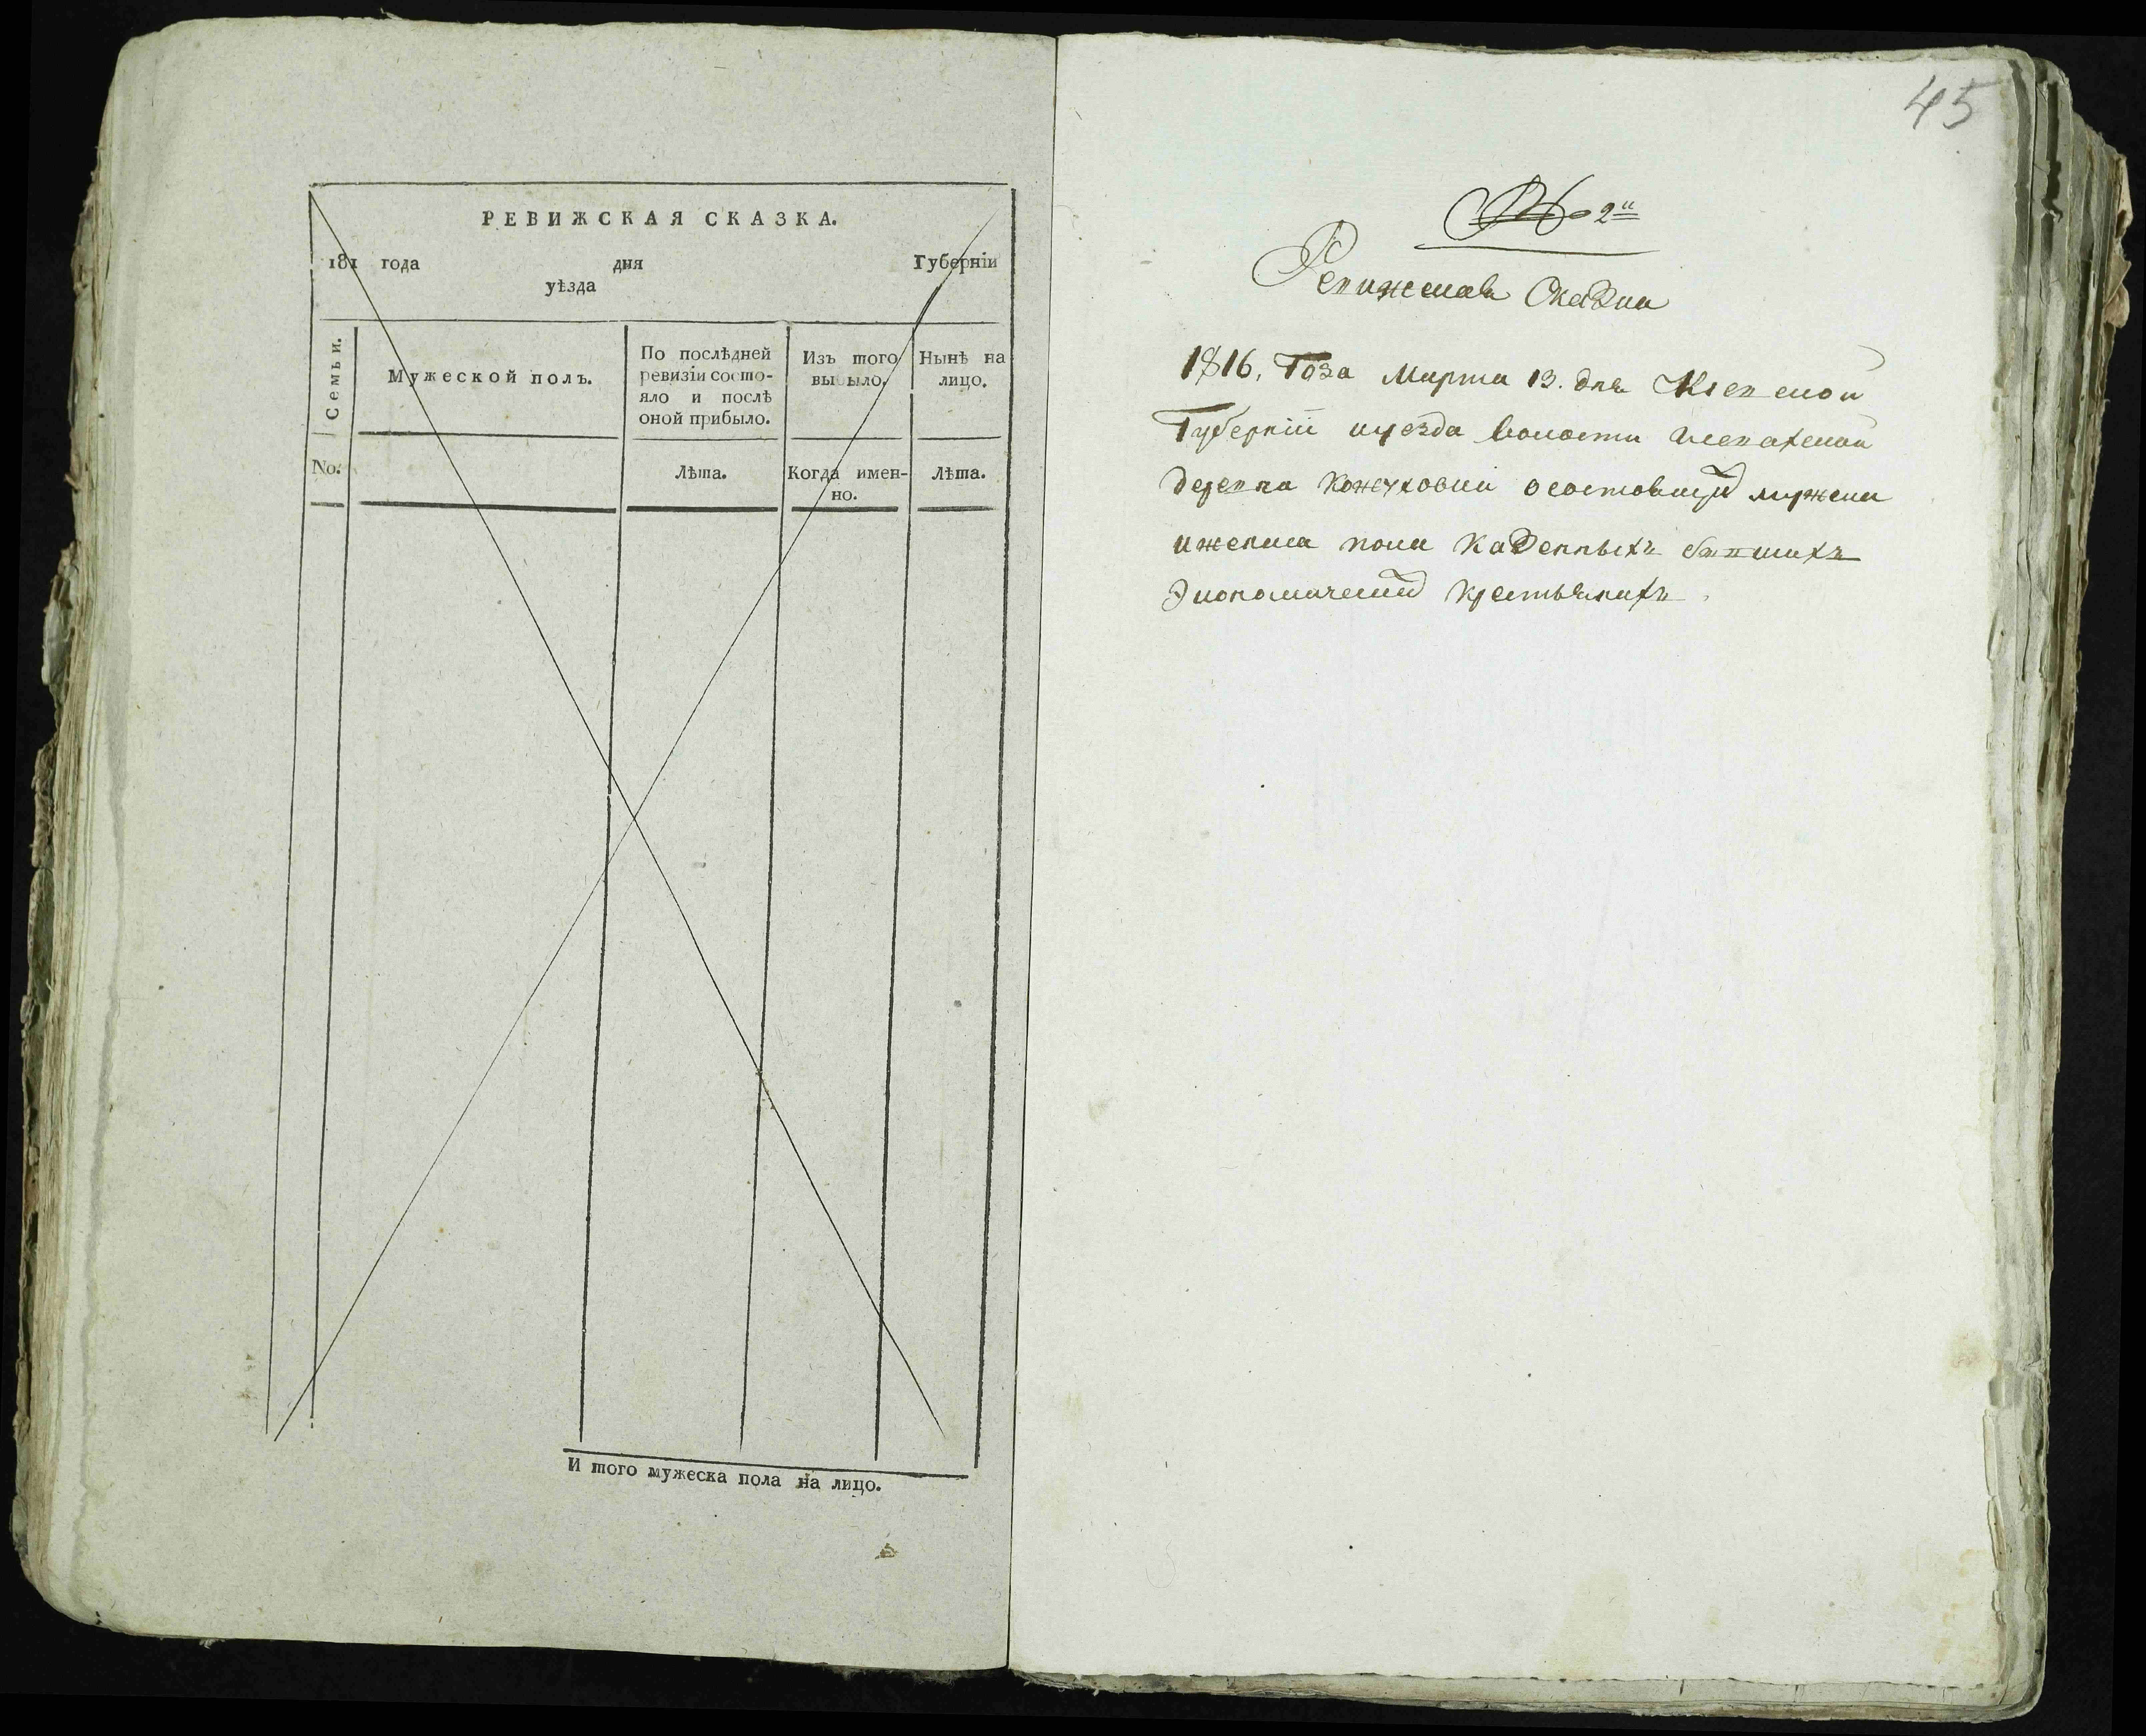 РЕВИЖСКАЯ СКАЗКА.
181 года дня Губерніи
уѣзда
Семьи.
Мужеской полъ.
По послѣдней
ревизіи состо-
яло и послѣ
оной прибыло.
Изъ того
выбыло.
Нынѣ на
лицо.
No.
Лѣта.
Когда имен-
но.
Лѣта.
И того мужеска пола на лицо.
45
№ 2й
Ревижская Сказка
1816, Года Марта 13. дня Кіевской
Губерніи иуезда волости
деревни осостоящих мужска
иженска пола Казенныхъ бывшихъ
Экономических Крестьянахъ